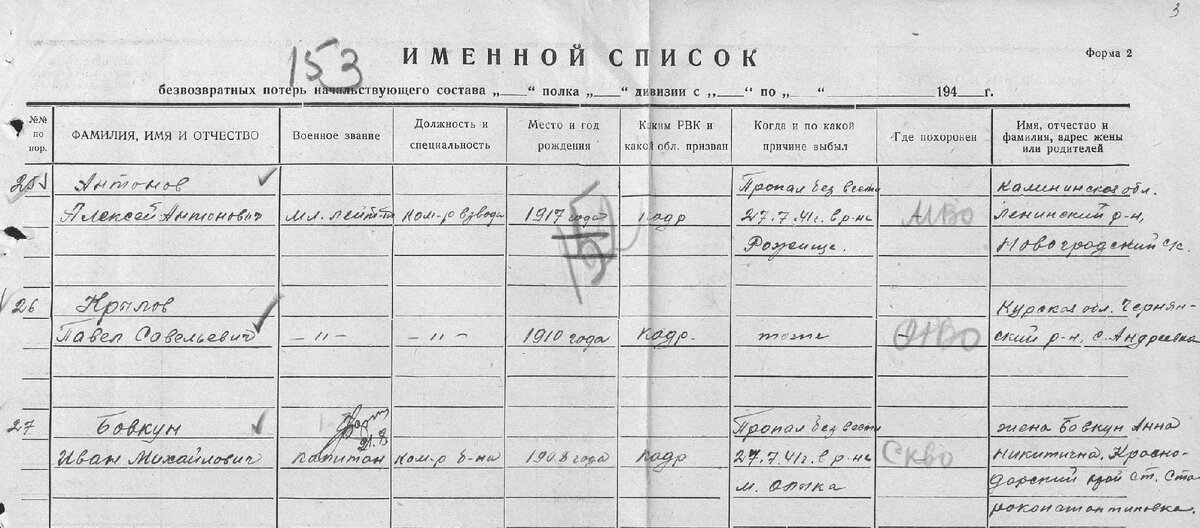 3
ИМЕННОЙ СПИСОК
Форма 2
153
безвозвратных потерь начальствующего состава „ “ полка „ “ дивизии с „ “ по „ “ 194 г.
№№ по пор.
ФАМИЛИЯ, ИМЯ И ОТЧЕСТВО
Военное звание
Должность и специальность
Место и год рождения
Каким РВК и какой обл. призван
Когда и по какой причине выбыл
Где похоронен
Имя, отчество и фамилия, адрес жены или родителей
25 Антонов Пропал без вести Калининская обл.
Алексей Антонович мл. лейт-т ком-р взвода 1917 года кадр 27.7.41г. в р-не МВО Ленинский р-н,
Рожище. Новоградский с/с.
26 Крылов Курская обл. Чернян-
Павел Савельевич –"– –"– 1910 года кадр. тоже ОВО ский р-н, с. Андреевка
27 Бовкун 21.8 Пропал без вести жена Бовкун Анна
Иван Михайлович капитан ком-р б-на 1908 года кадр 27.7.41г. в р-не СКВО Никитична, Красно-
м. Олыка дарский край ст. Ста
роконстантиновка.